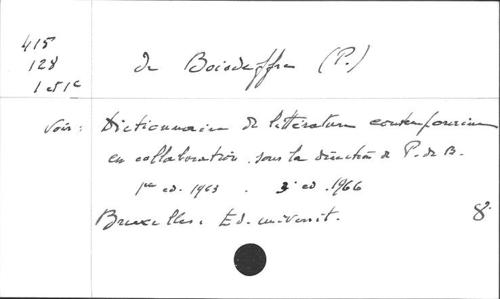 415
128
1 et 1c
de Boisdeffre (P.)
voir: Dictionnaire de littérature contemporaine
en collaboration sous la direction de P. de B.
1re ed. 1963 . 3e ed. 1966
Bruxelles. Ed. universit. 8°